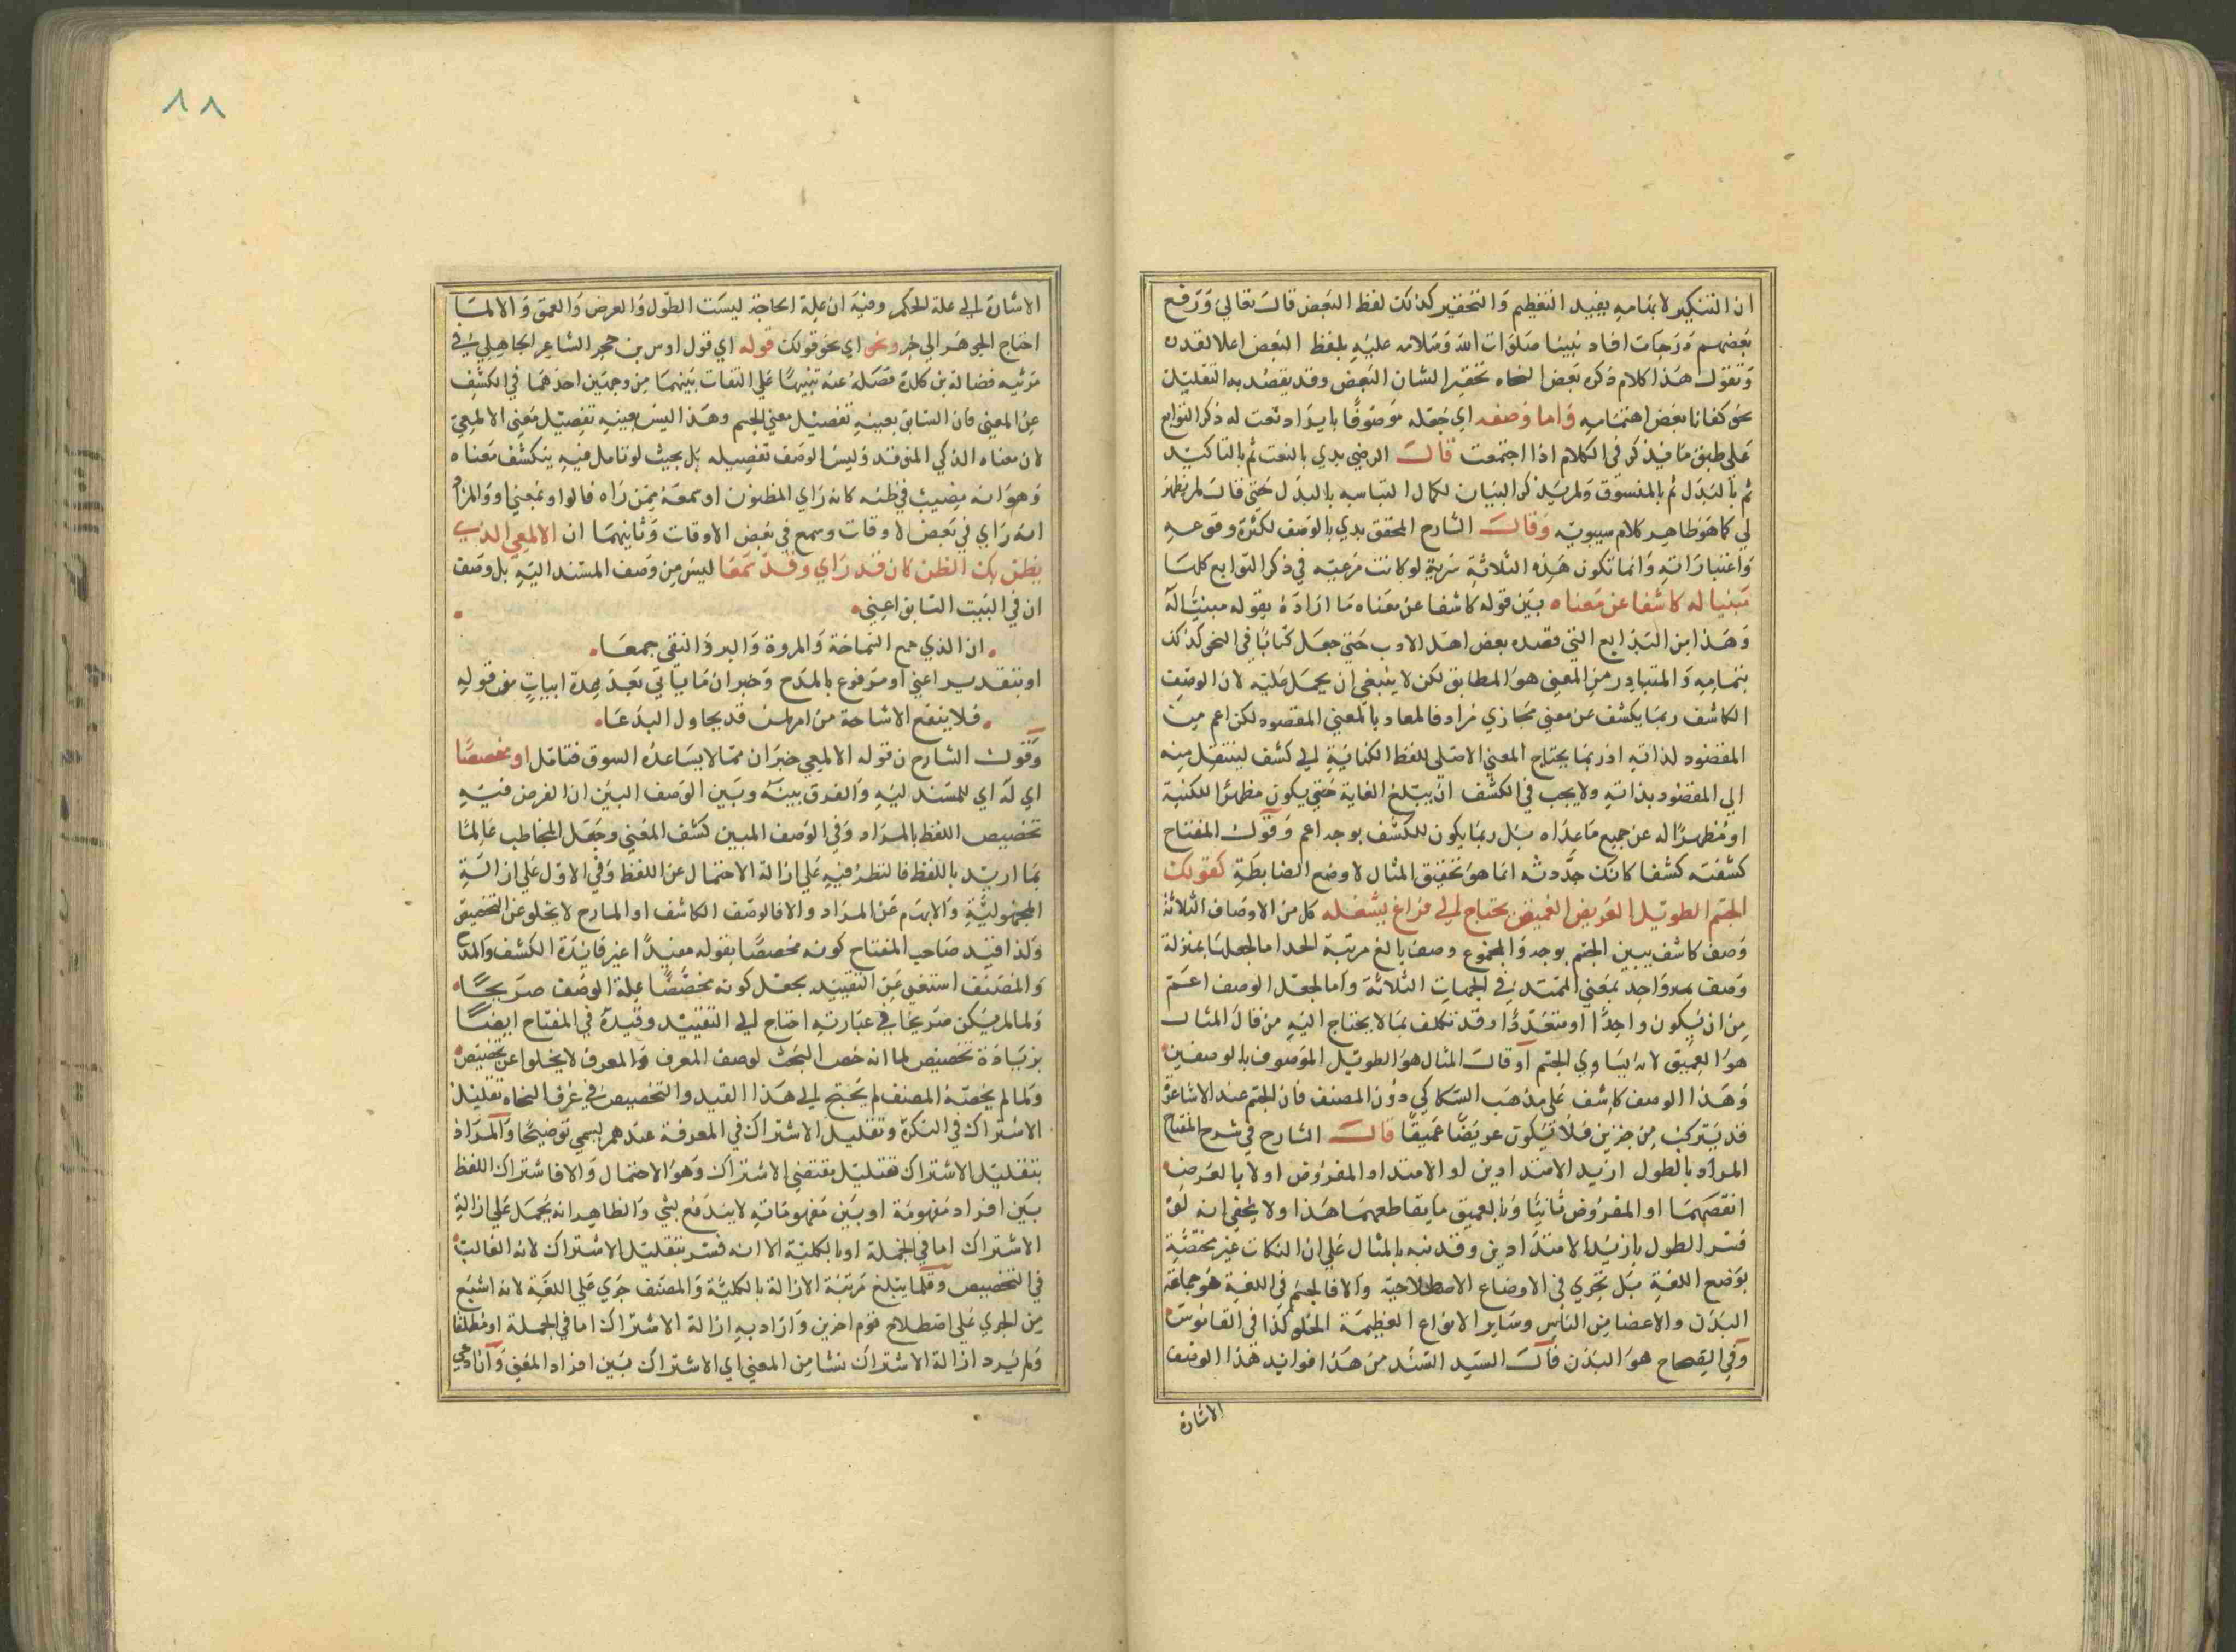 ان التنكير لا بتمامه يفيد التعظيم والتحقير كذلك لفظ البعض قال تعالى ورفع
بعضهم درجات افاد نبينا صلوات الله وسلامه عليه بلفظ البعض اعلا لقدره
وتقول هذا كلام ذكره بعض النحاه تحقيرا لشان البعض وقد يقصد به التقليل
نحو كفانا بعض اهتمامه واما وصفه اي جعله موصوفا بايراد نعت له ذكر التوابع
على طبق ما يذكر في الكلام اذا اجتمعت قال الرضي بدي بالنعت ثم بالتاكيد
ثم بالبدل ثم بالمنسوق ولم يذكر البيان لكمال التباسه بالبدل حتى قال لم يظهر
لي كما هو ظاهر كلام سيبويه وقال الشارح المحقق بدي بالوصف لكثرة وقوعه
واعتباراته وانما تكون هذه الثلاثة مزية لو كانت مرعية في ذكر التوابع كلها
مبنيا له كاشفا عن معناه بين قوله كاشفا عن معناه ما اراده بقوله مبينا له
وهذا من البدايع التي قصده بعض اهل الادب حتى جعل كتابا في النحو كذلك
بتمامه والمتبادر من المعنى هو المطابق لكن لا ينبغي ان يحمل عليه لان الوصف
الكاشف ربما يكشف عن معنى مجازي مراد فالمعاد بالمعنى المقصود لكن اعم من
المقصود لذاته اذ ربما يحتاج المعنى الاصلي للفظ الكنائية الى كشف لينتقل منه
الى المقصود بذاته ولا يجب في الكشف ان يبلغ الغاية حتى يكون مظهرا للكنية
او مظهرا له عن جميع ماعداه بل ربما يكون للكشف بوجه اعم وقول المفتاح
كشفته كشفا كانك حددته انما هو تحقيق المثال لا وضع الضابطة كقولك
الجسم الطويل العريض العميق يحتاج الى فراغ يشغله كل من الاوصاف الثلاثة
وصف كاشف يبين الجسم بوجه والمجموع وصف بالغ مرتبة الحد اما لجعلها بمنزلة
وصف واحد بمعنى الممتد في الجهات الثلاثة واما لجعل الوصف اعم
من ان يكون واحدا او متعددا وقد تكلف بما لا يحتاج اليه من قال المثال
هو العميق لانه يساوي الجسم او قال المثال هو الطويل الموصوف بالوصفين
وهذا الوصف كاشف على مذهب السكاكي دون المصنف فان الجسم عند الاشاعرة
قد يتركب من جزين فلا يكون عريضا عميقا قال الشارح في شرح المفتاح
المراد بالطول ازيد الامتدادين او الامتداد المفروض اولا بالعرض
انقصهما او المفروض ثانيا وبالعميق ما يقاطعهما هذا ولا يخفى انه لو
فسر الطول بازيد الامتدادين وقد نبه بالمثال على ان النكات غير مختصة
بوضع اللغة بل تجري في الاوضاع الاصطلاحية والا فالجسم في اللغة هو جماعة
البدن والاعضا من الناس وساير الانواع العظيمة الخلق كذا في القاموس
وفي الصحاح هو البدن قال السيد السند من هذا فوايد هذا الوصف
الاشارة
٨٨
الاشارة الى علة الحكم وفيه ان علة الحاجة ليست الطول والعرض والعمق والا لما
احتاج الجوهر الى حيز ونحو اي نحو قولك قوله اي قول اوس بن حجر الشاعر الجاهلي في
مرثيه فضالة بن كلدة فصله عنه تنبيها على التفات بينهما من وجهين احدهما في الكشف
عن المعنى فان السابق بعينه تفصيل معنى الجسم وهذا ليس بعينه تفصيل معنى الالمعي
لان معناه الذكي المتوقد وليس الوصف تفصيله بل بحيث لو تامل فيه ينكشف معناه
وهو انه مصيب في ظنه كانه راي المظنون او سمعه ممن راه قالوا و بمعنى او والمراد
انه راي في بعض الاوقات وسمع في بعض الاوقات وثانيهما ان الالمعي الذي
يظن بك الظن كان قد راي وقد سمعا ليس من وصف المسند اليه بل وصف
ان في البيت السابق اعني
ان الذي جمع السماحة والمروة والبر والتقى جمعا
او بتقدير اعني او مرفوع بالمدح وخبر ان ما ياتي بعد عدة ابيات من قوله
فلا ينفع الاشاحة من امر لمن قد يحاول البدعا
وقول الشارح ان قوله الالمعي خبر ان مما لا يساعده السوق فتامل او مخصصا
اي له اي للمسند ليه والفرق بينه وبين الوصف البين ان الغرض فيه
تخصيص اللفظ بالمراد وفي الوصف المبين كشف المعنى وجعل المخاطب عالما
بما اريد باللفظ فالنظر فيه على ازالة الاحتمال عن اللفظ وفي الاول على ازالة
المجهولية والابهام عن المراد والا فالوصف الكاشف او المادح لا يخلو عن التخصيص
ولذا قيد صاحب المفتاح كونه مخصصا بقوله مفيدا غير فائدة الكشف والمدح
والمصنف استغنى عن التقييد بجعل كونه مخصصا علة الوصف صريحا
ولما لم يكن صريحا في عبارته احتاج الى التقييد وقيده في المفتاح ايضا
بزيادة تخصيص لما انه خص البحث لوصف المعرف والمعرف لا يخلوا عن تخصيص
ولما لم يخصه المصنف لم يحتج الى هذا القيد والتخصيص في عرف النحاه تقليل
الاشتراك في النكرة وتقليل الاشتراك في المعرفة عندهم يسمى توضيحا والمراد
بتقليل الاشتراك تقليل مقتضى الاشتراك وهو الاحتمال والا فاشتراك اللفظ
بين افراد مفهومة او بين مفهوماته لا يندفع بشي والظاهر انه يحمل على ازالة
الاشتراك اما في الجملة او بالكلية الا انه فسر بتقليل الاشتراك لانه الغالب
في التخصيص وقلما يبلغ مرتبة الازالة بالكلية والمصنف جرى على اللغة لانه اشبع
من الجري على اصطلاح قوم اخرين واراد به ازالة الاشتراك اما في الجملة او مطلقا
ولم يرد ازالة الاشتراك نشا من المعنى اي الاشتراك بين افراد المعنى